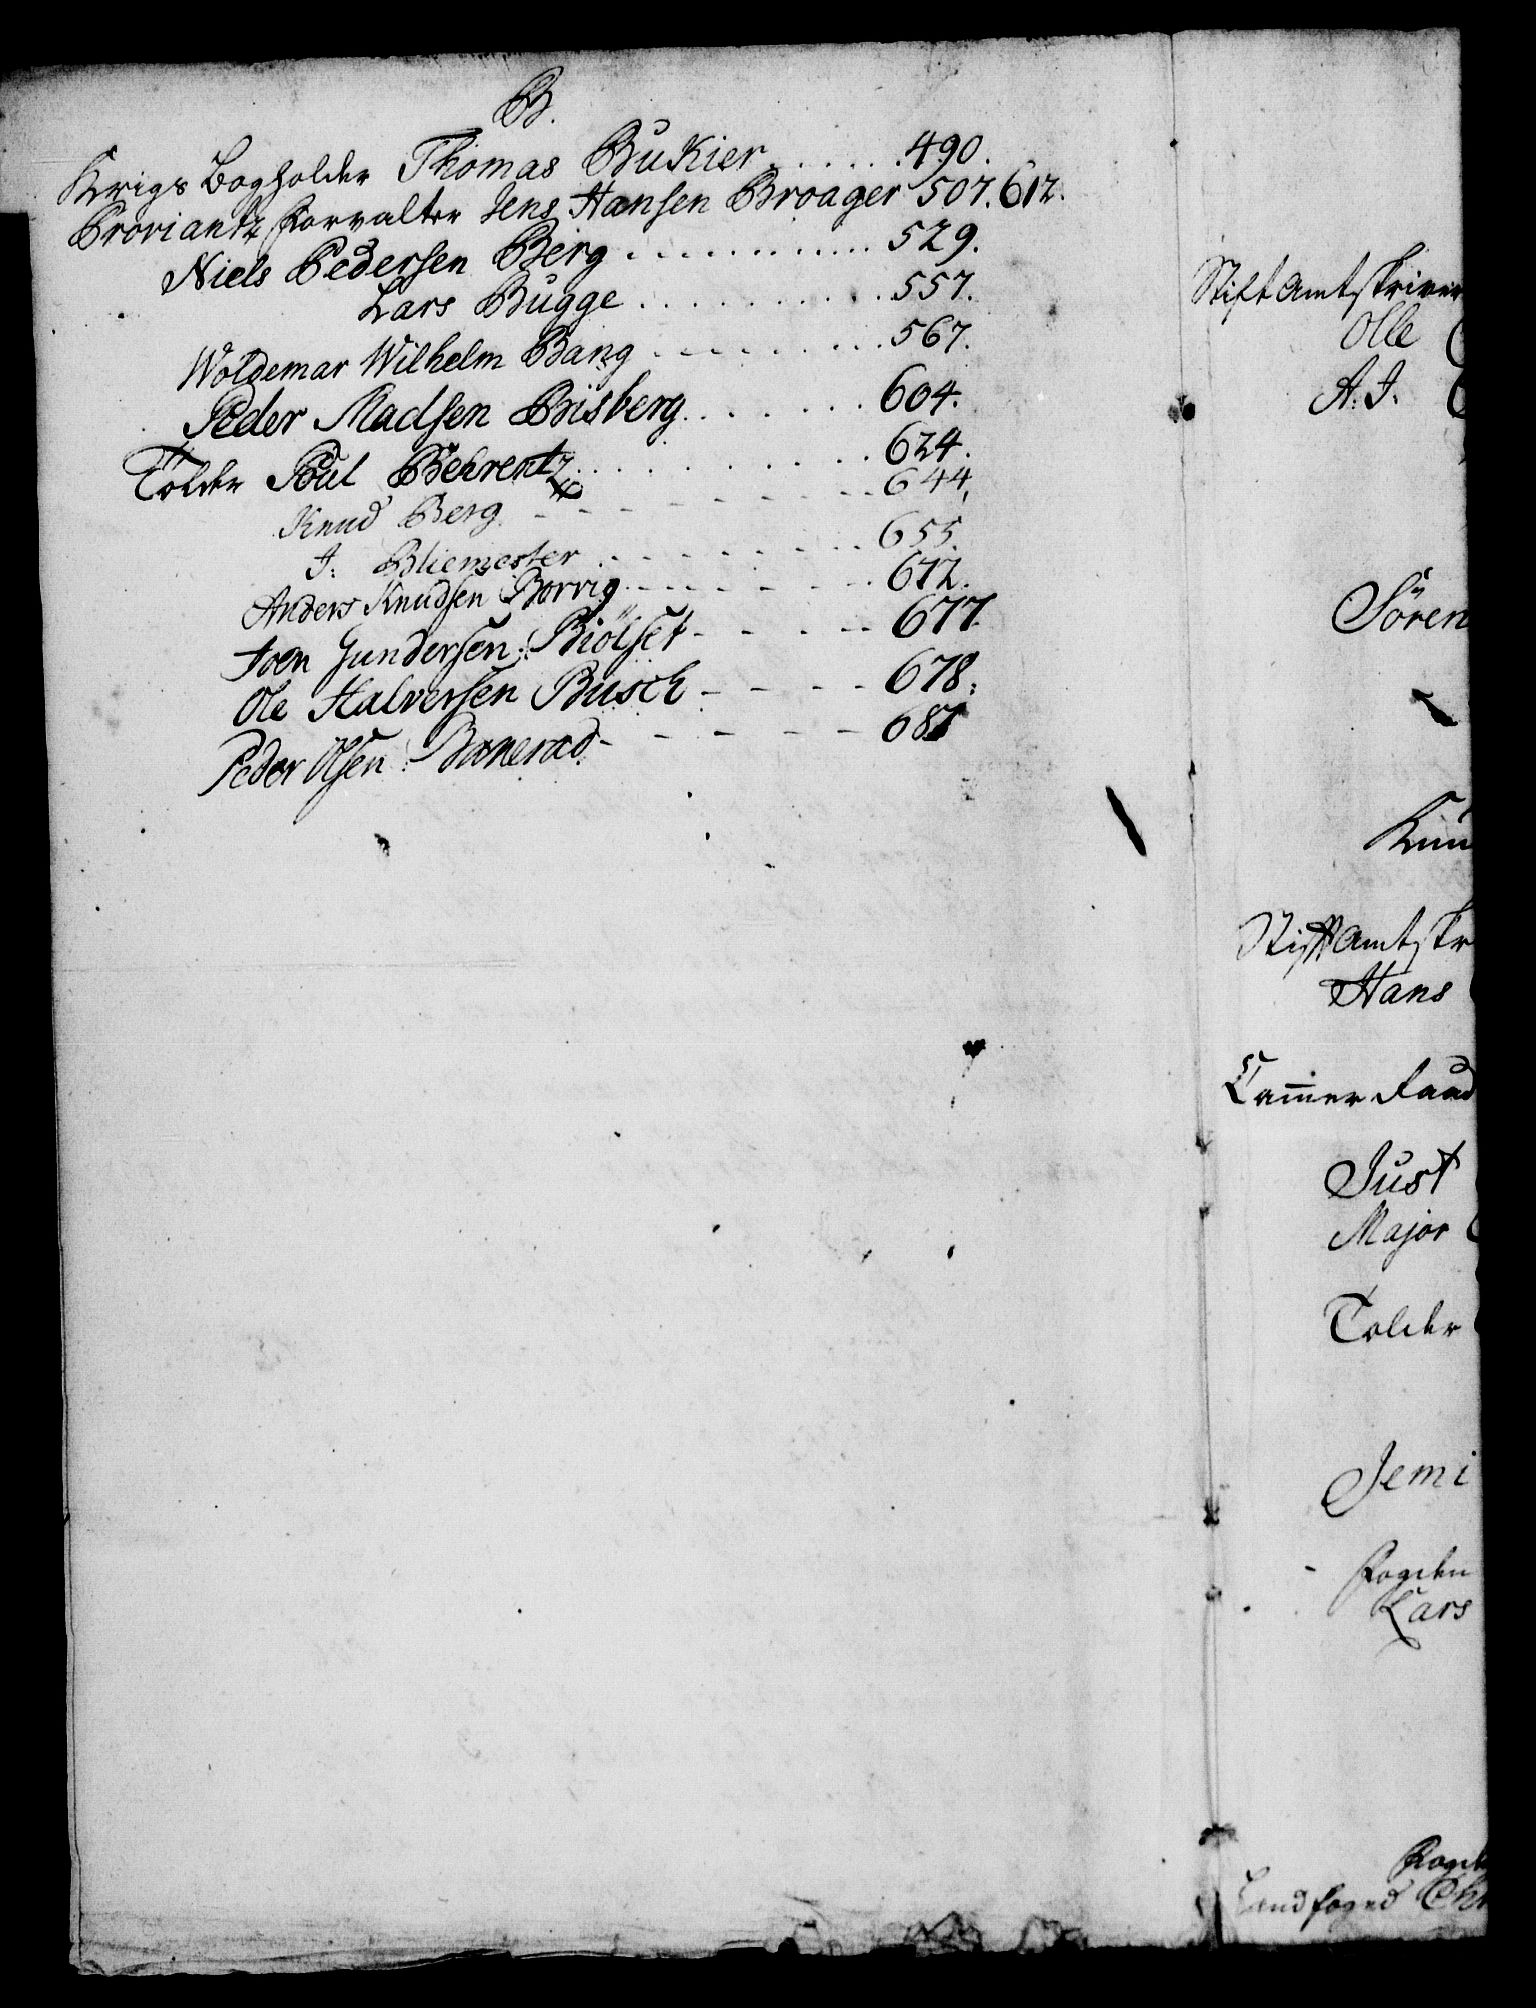 B.
Krigs Bogholder Thomas Bukier . . . . . . 490.
Proviant Forvalter Jens Hansen Broager 507. 612.
Niels Pedersen Berg . . . . . . . . . . . 529.
Lars Bugge . . . . . . . . . . 557.
Woldemar Wilhelm Bang . . . . . . . . . 567.
Peder Madsen Brisberg . . . . . . . 604.
Tolder Poul Behrentz . . . . . . . . . . . 624.
Knud Berg - - - - - - - - - 644.
J. Bliemester . - - - - - - - - 655.
Anders Knudsen Borvig - - - - - - 672.
Joen Gundersen Biölset - - - - - 677.
Ole Halversen Busch - - - - - 678:
Peder Olsen - - - - - - 681
Stift Amtskriver
Olle
A. J.
Sören
Knu
Stift Amtskr
Hans
Cammer Raad
Just
Major
Tolder
Jemi
Fogden
Lars
Fogd
Landfoged Chr